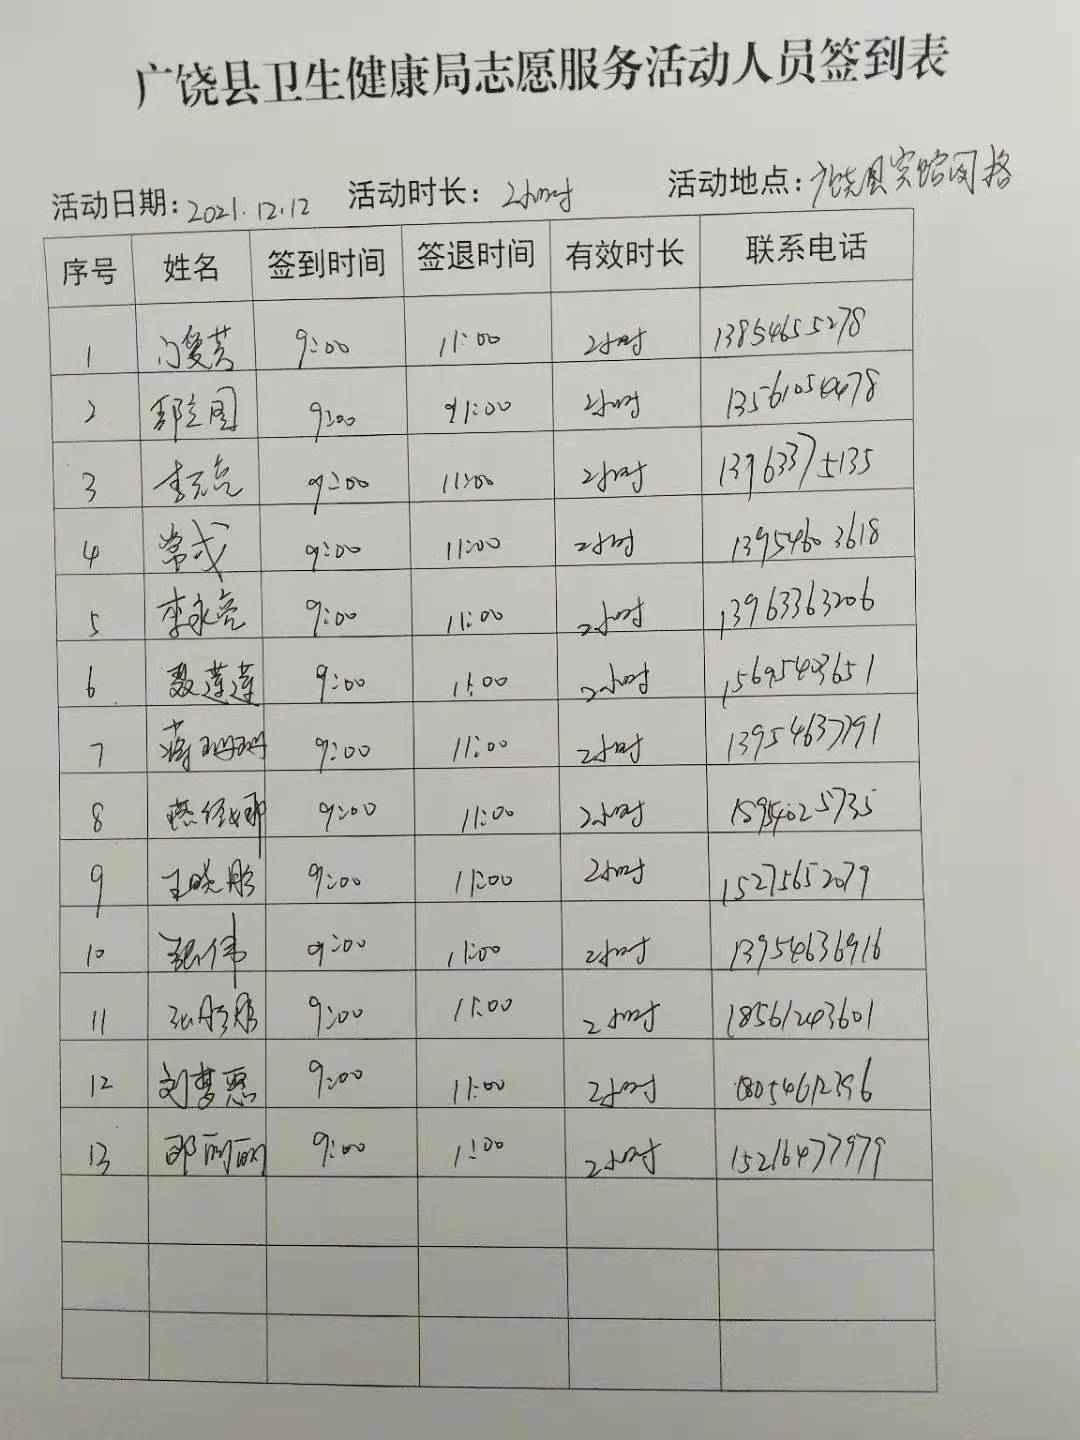 广饶县卫生健康局志愿服务活动人员签到表
活动日期: 2021.12.12 活动时长: 2小时 活动地点: 广饶县宾馆网格
序号 姓名 签到时间 签退时间 有效时长 联系电话
1 门复芸 9:00 11:00 2小时 13854655278
2 9:00 11:00 2小时 13561054478
3 李元亮 9:00 11:00 2小时 13963375135
4 常戎 9:00 11:00 2小时 13954603618
5 李永亮 9:00 11:00 2小时 13963363206
6 聂莲莲 9:00 11:00 2小时 15695403651
7 蒋珊珊 9:00 11:00 2小时
8 9:00 11:00 2小时
9 王晓彤 9:00 11:00 2小时 15275652079
10 张伟 9:00 11:00 2小时 13954636916
11 9:00 11:00 2小时 18561243601
12 刘梦恩 9:00 11:00 2小时 18054612396
13 邵丽丽 9:00 11:00 2小时 15216477979